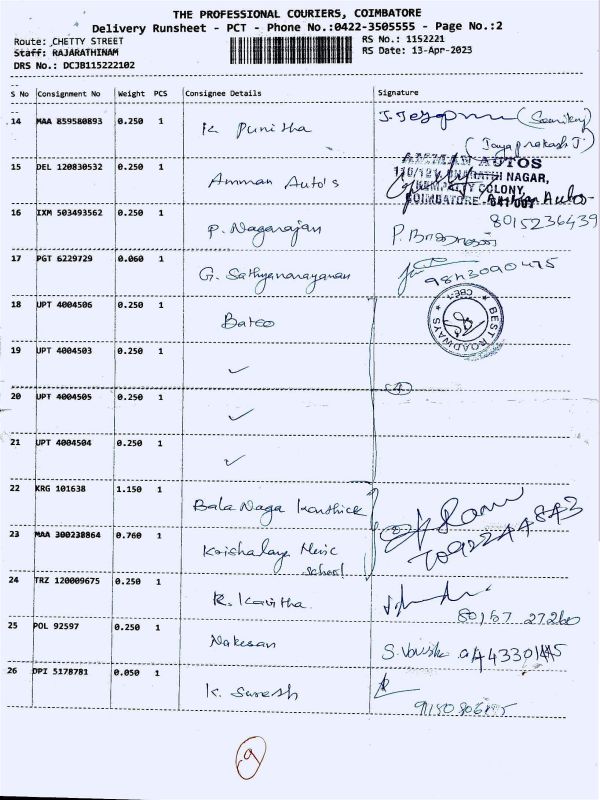 THE PROFESSIONAL COURIERS, COIMBATORE
Delivery Runsheet - PCT - Phone No.:0422-3505555 - Page No.:2
Route: CHETTY STREET
Staff: RAJARATHINAM
DRS No.: DCJB115222102
RS No.: 1152221
RS Date: 13-Apr-2023
S No Consignment No Weight PCS Consignee Details Signature
14 MAA 859580893 0.250 1 K Punitha
(Jayaprakash J)
15 DEL 120830532 0.250 1 Amman Auto's
AMMAN AUTOS
BHARATHI NAGAR,
COLONY,
COIMBATORE - 641 007
8015236439
16 IXM 503493562 0.250 1 P. Nagarajan
17 PGT 6229729 0.060 1 G. Sathyanarayanan
9843090475
18 UPT 4004506 0.250 1 Batco
BEST ROADWAYS ★ CBE-1 ★
19 UPT 4004503 0.250 1 ✓
4
20 UPT 4004505 0.250 1 ✓
21 UPT 4004504 0.250 1 ✓
22 KRG 101638 1.150 1 Bala Naga Karthick
7092244843
23 MAA 300238864 0.760 1 Music
school
24 TRZ 120009675 0.250 1 K. Kavitha
80157 27260
25 POL 92597 0.250 1
26 DPI 5178781 0.050 1 K. Suresh
9